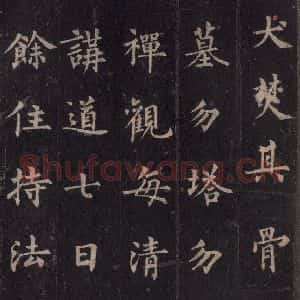 犬焚其骨
墓勿塔勿
禪觀每清
講道七日
餘住持法
Shufawang.CN